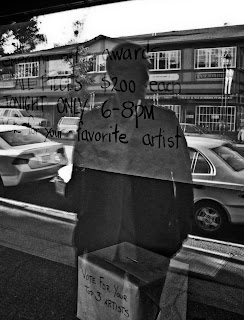 award
ALL PIECES $200 each
TONIGHT ONLY 6-8PM
for your favorite artist
VOTE FOR YOUR
TOP 3 ARTISTS